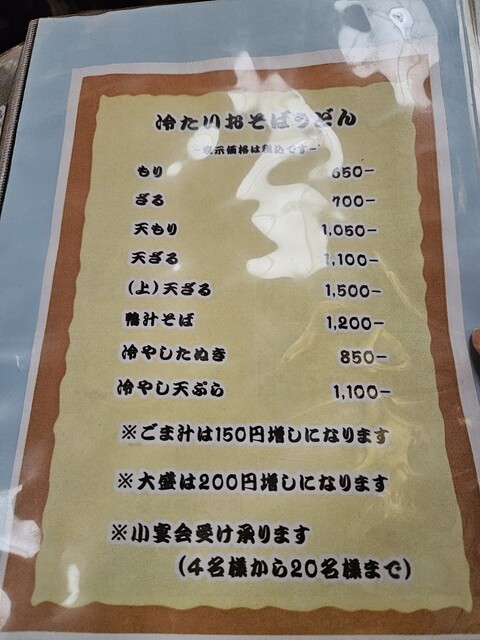 冷たいおそばうどん
-表示価格は税込です-
もり 650-
ざる 700-
天もり 1,050-
天ざる 1,100-
(上)天ざる 1,500-
鴨汁そば 1,200-
冷やしたぬき 850-
冷やし天ぷら 1,100-
※ごま汁は150円増しになります
※大盛は200円増しになります
※小宴会受け承ります
(4名様から20名様まで)